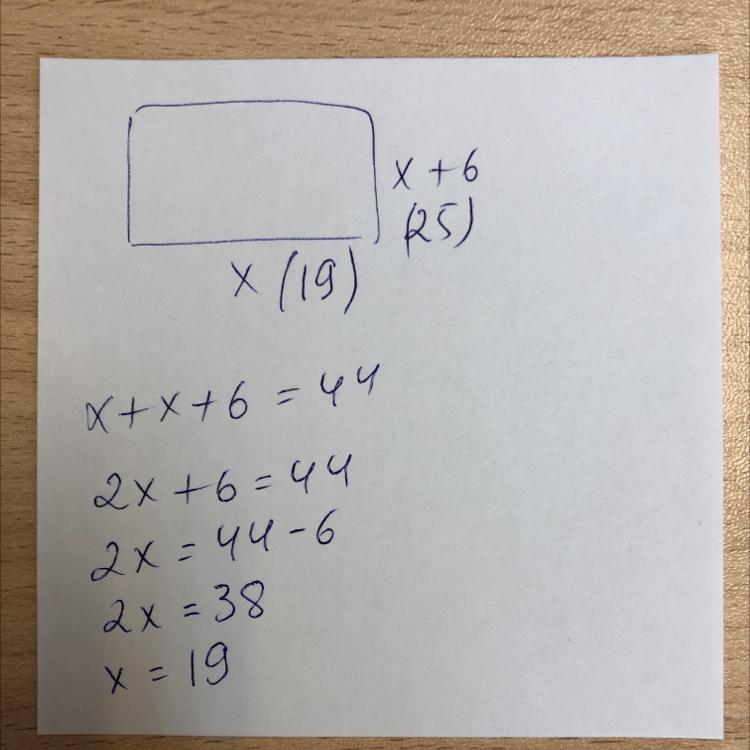 x + 6
(25)
x (19)
x + x + 6 = 44
2x + 6 = 44
2x = 44 - 6
2x = 38
x = 19